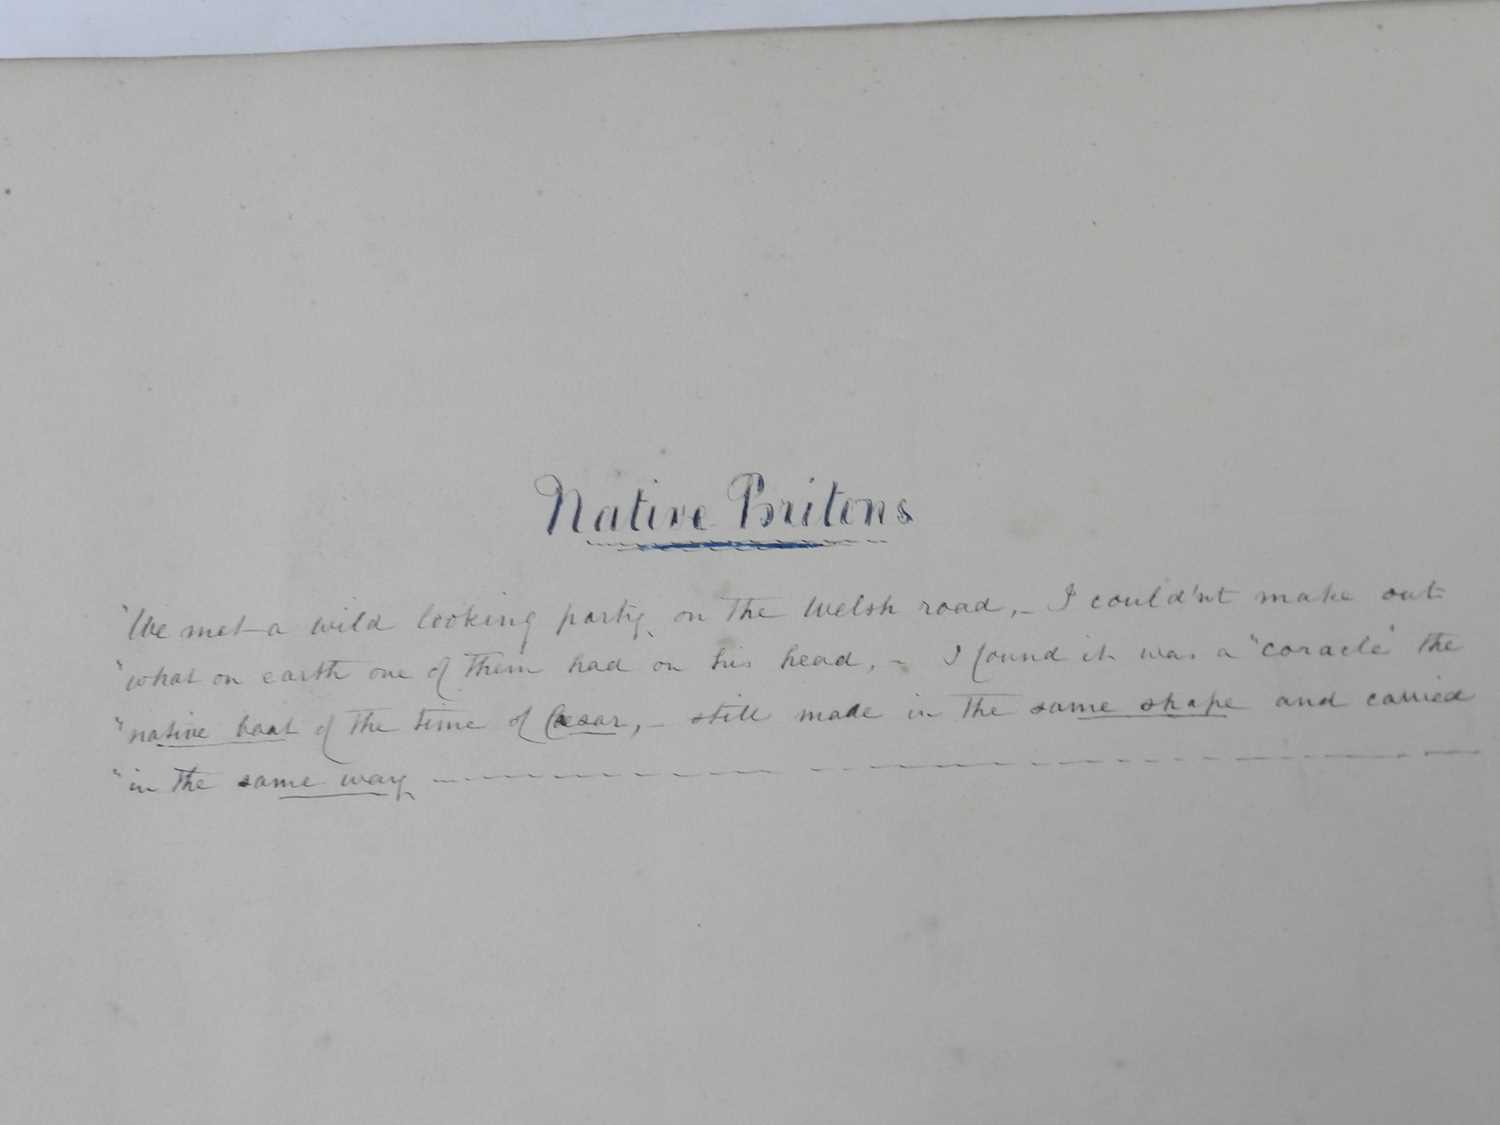 Native Britons
"We met a wild looking party, on the Welsh road, – I could'nt make out
"what on earth one of them had on his head, – I found it was a "coracle" the
"native boat of the time of Caesar, – still made in the same shape and carried
"in the same way